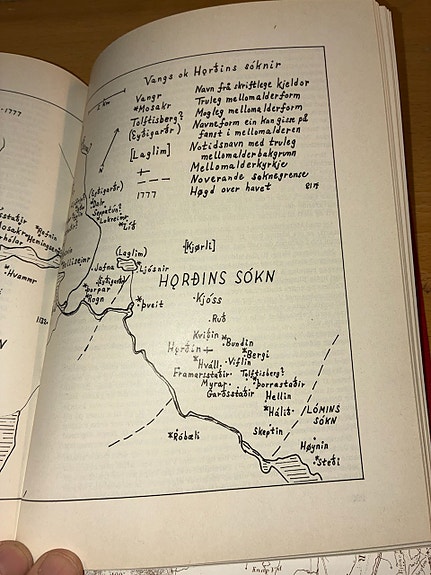 Vangs ok Hǫrðins sóknir
1 km
Vangr
Navn frå skriftlege kjeldor
*Mosakr
Truleg mellomalderform
Tolftisberg?
Mogleg mellomalderform
(Eyðigarðr)
Namneform ein kan gisse på
fanst i mellomalderen
[Laglim]
Notidsnavn med truleg
mellomalderbakgrunn
Mellomalderkyrkje
Noverande soknegrense
1777
Høgd over havet
-1777
*Dalr
*Lokreimr
*Líð
*Hvammr
(Laglim)
*Ljósnir
Jafna
*Þorpar
Hogn
*Þveit
[Kjǫrli]
HǪRÐINS SÓKN
Kjóss
Ruð
Kviðin
*Bundin
Hǫrðin
*Bergi
*Hváll
Viflin
Framarsstaðir
Tolftisberg?
Myrar
*Þorrastaðir
Garðsstaðir
Hellin
*Hálið
LÓMINS
SÓKN
Skeptin
*Róbæli
Høynin
*Steði